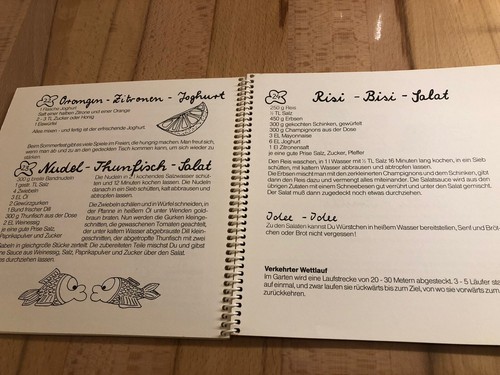 Orangen - Zitronen - Joghurt
1 Flasche Joghurt
Saft einer halben Zitrone und einer Orange
2 - 3 TL Zucker oder Honig
1 Eiswürfel
Alles mixen - und fertig ist der erfrischende Joghurt.
Beim Sommerfest gibt es viele Spiele im Freien, die hungrig machen. Man freut sich,
wenn man ab und zu an den gedeckten Tisch kommen kann, um sich wieder zu
stärken.
Nudel - Thunfisch - Salat
300 g breite Bandnudeln
1 gestr. TL Salz
2 Zwiebeln
3 EL Öl
2 Gewürzgurken
1 Bund frischer Dill
300 g Thunfisch aus der Dose
2 EL Weinessig
je eine gute Prise Salz,
Paprikapulver und Zucker
Die Nudeln in 2 l kochendes Salzwasser schüt-
ten und 12 Minuten kochen lassen. Die Nudeln
danach in ein Sieb schütten, kalt abbrausen und
abtropfen lassen.
Die Zwiebeln schälen und in Würfel schneiden, in
der Pfanne in heißem Öl unter Wenden gold-
braun braten. Nun werden die Gurken kleinge-
schnitten, die gewaschenen Tomaten geachtelt,
der unter kaltem Wasser abgebrauste Dill klein-
geschnitten, der abgetropfte Thunfisch mit zwei
Gabeln in gleichgroße Stücke zerteilt. Die zubereiteten Teile mischst Du und gibst
die Sauce aus Weinessig, Salz, Paprikapulver und Zucker über den Salat.
durchziehen lassen.
24
Risi - Bisi - Salat
250 g Reis
½ TL Salz
450 g Erbsen
300 g gekochten Schinken, gewürfelt
300 g Champignons aus der Dose
3 EL Mayonnaise
6 EL Joghurt
1 EL Zitronensaft
je eine gute Prise Salz, Zucker, Pfeffer
Den Reis waschen, in 1 l Wasser mit ½ TL Salz 16 Minuten lang kochen, in ein Sieb
schütten, mit kaltem Wasser abbrausen und abtropfen lassen.
Die Erbsen mischt man mit den zerkleinerten Champignons und dem Schinken, gibt
dann den Reis dazu und vermengt alles miteinander. Die Salatsauce wird aus den
übrigen Zutaten mit einem Schneebesen gut verrührt und unter den Salat gemischt.
Der Salat muß dann zugedeckt noch etwas durchziehen.
Idee - Idee
Zu den Salaten kannst Du Würstchen in heißem Wasser bereitstellen, Senf und Bröt-
chen oder Brot nicht vergessen!
Verkehrter Wettlauf
Im Garten wird eine Laufstrecke von 20 - 30 Metern abgesteckt. 3 - 5 Läufer
auf einmal, und zwar laufen sie rückwärts bis zum Ziel, von wo sie vorwärts zum
zurückkehren.